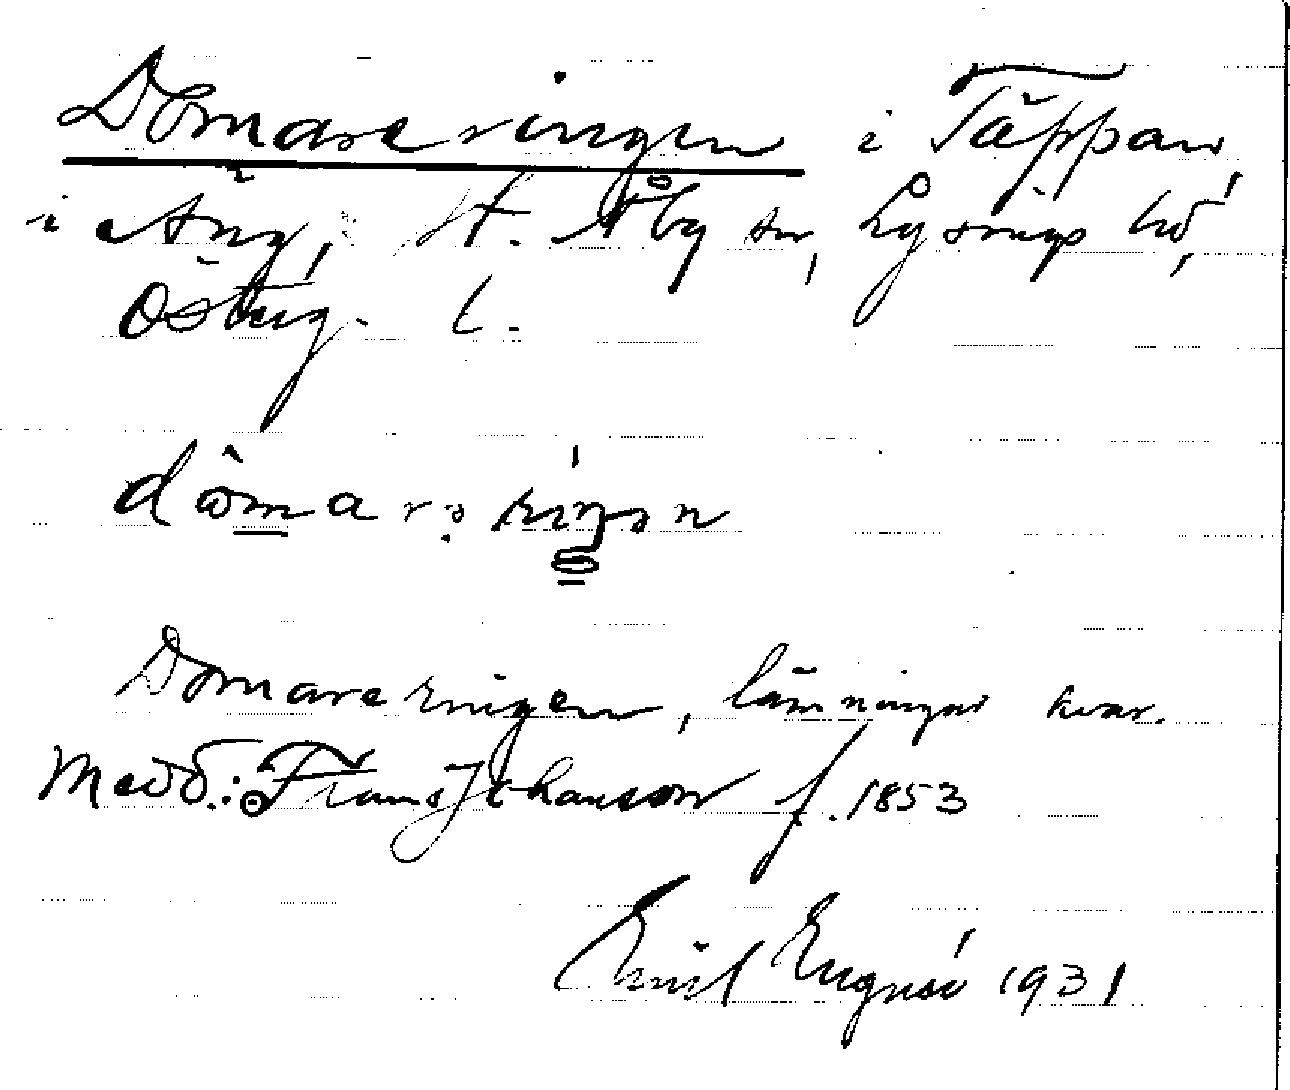 Domareringen i Täppan
i Äng, St. Åby sn, Lysings hd,
Östurg. l.
dömarə riŋən
Domareringen, lämningar kvar.
Medd.: Frans Johansson f. 1853
Emil Engnér 1931